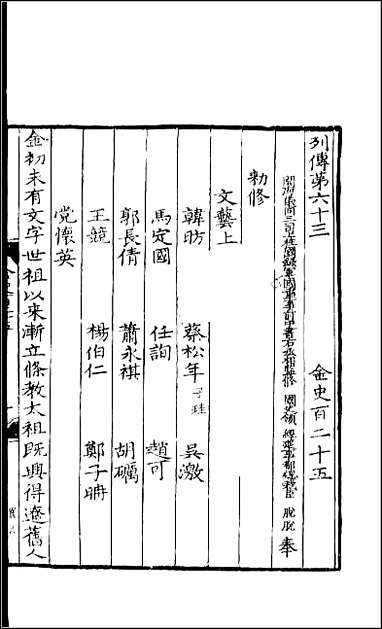 列傳第六十三 金史百二十五
開府儀同三司上柱國錄軍國重事前中書右丞相監修國史領經筵事都總裁臣脫脫奉
勑修
文藝上
韓昉 蔡松年子珪 吳激
馬定國 任詢 趙可
郭長倩 蕭永祺 胡礪
王競 楊伯仁 鄭子聃
党懷英
金初未有文字世祖以來漸立條教太祖既興得遼舊人